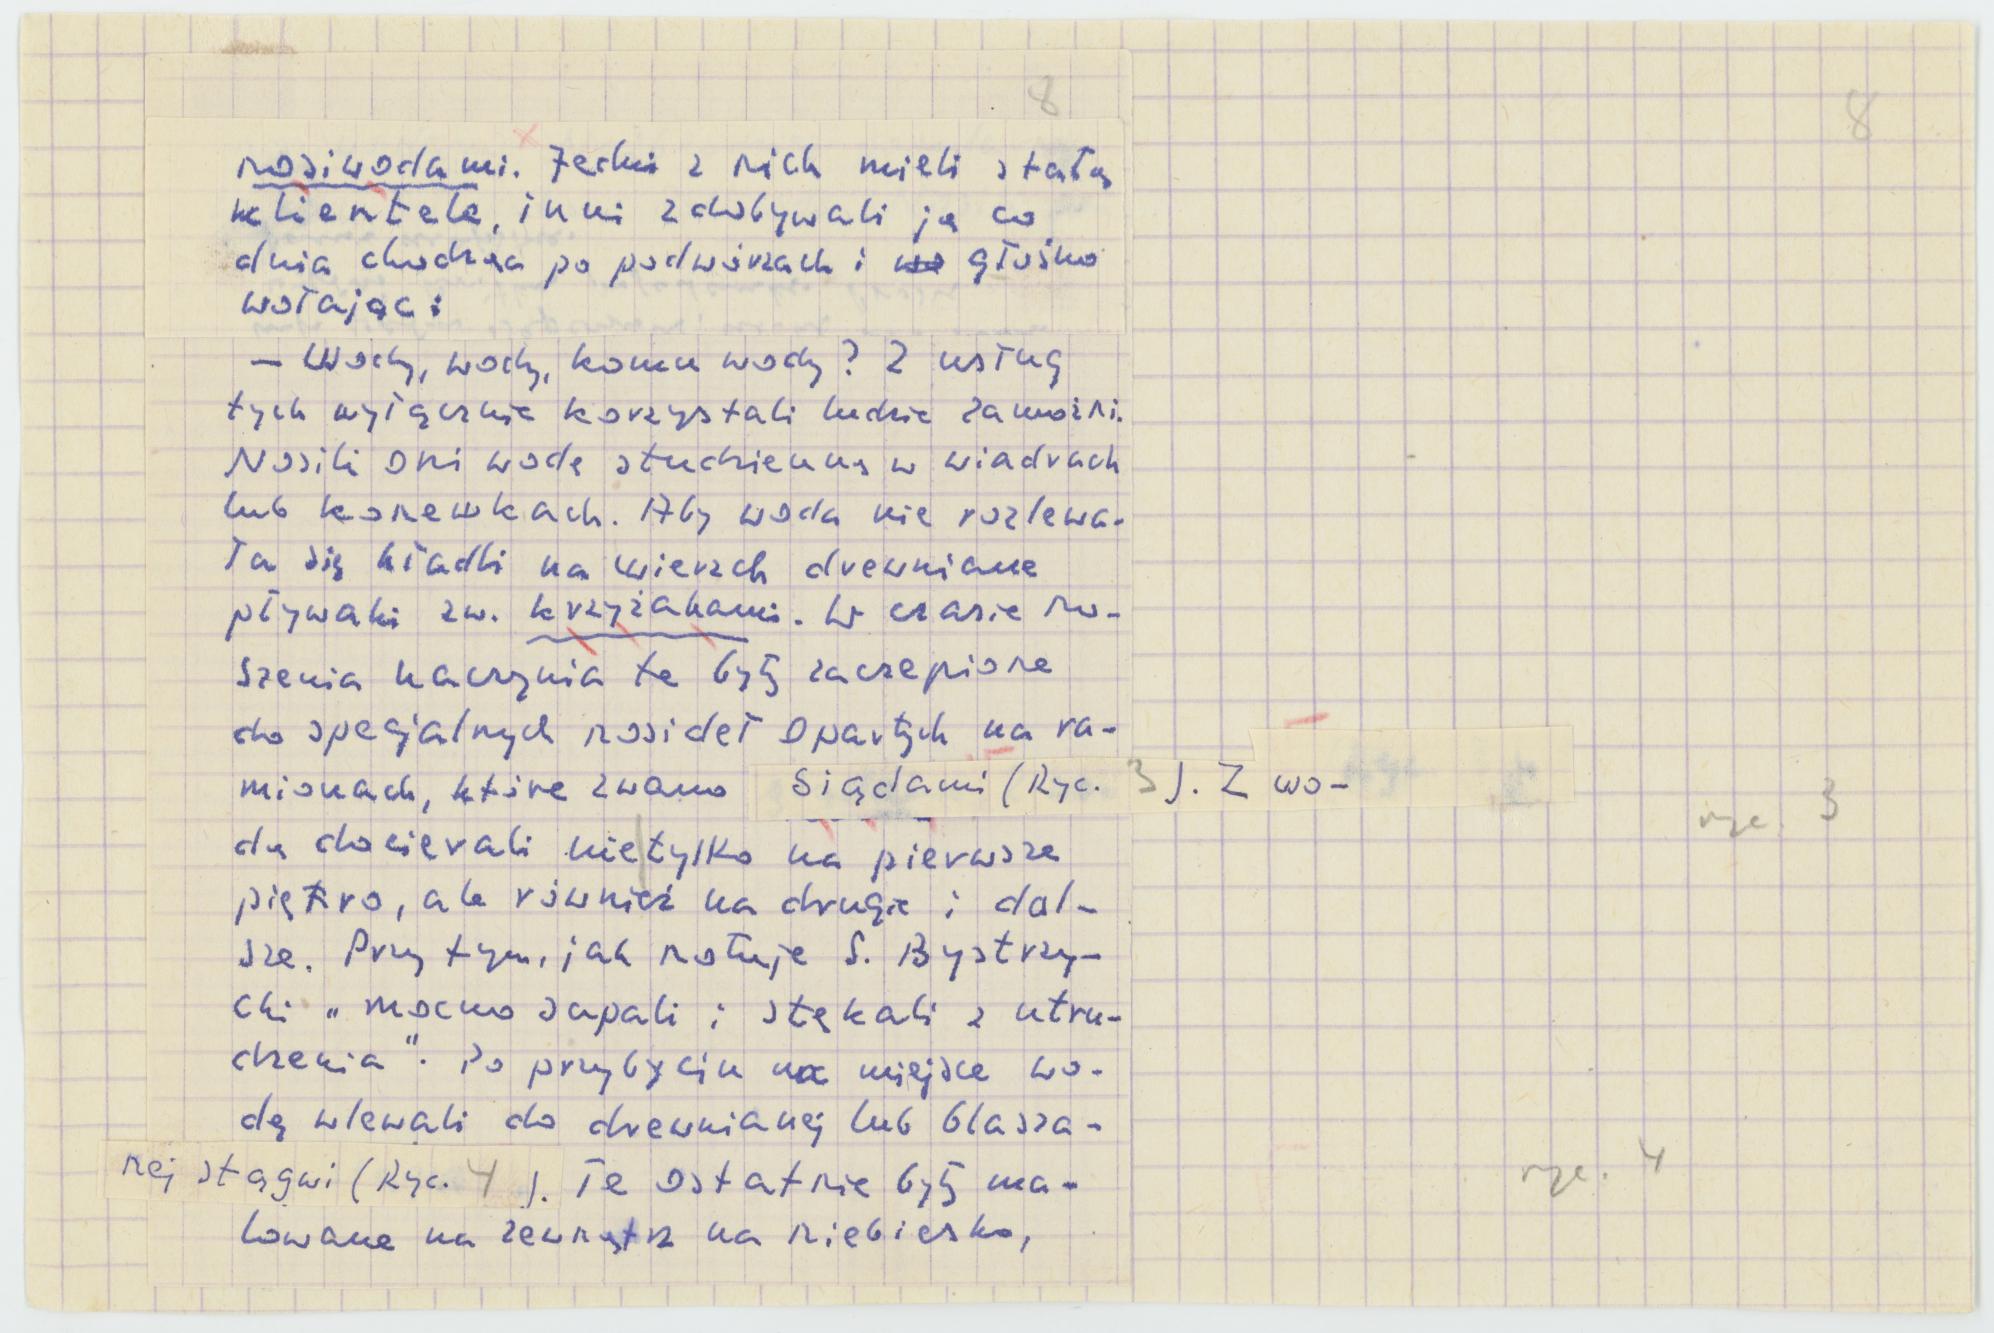 8
8
nosiwodami. Jedni z nich mieli stałą
klientelę, inni zdobywali ją co
dnia chodząc po podwórzach i głośno
wołając:
— Wody, wody, komu wody? Z usług
tych wyłącznie korzystali ludzie zamożni.
Nosili oni wodę studzienną w wiadrach
lub konewkach. Aby woda nie rozlewa-
ła się kładli na wierzch drewniane
pływaki zw. krzyżakami. W czasie no-
szenia naczynia te były zaczepione
do specjalnych nosideł opartych na ra-
mionach, które zwano siądami (Ryc. 3). Z wo-
ryc. 3
dą docierali nie|tylko na pierwsze
piętro, ale również na drugie i dal-
sze. Przy tym, jak notuje S. Bystrzy-
cki „mocno sapali i stękali z utru-
dzenia". Po przybyciu na miejsce wo-
dę wlewali do drewnianej lub blasza-
nej stągwi (Ryc. 4). Te ostatnie były ma-
ryc. 4
lowane na zewnątrz na niebiesko,